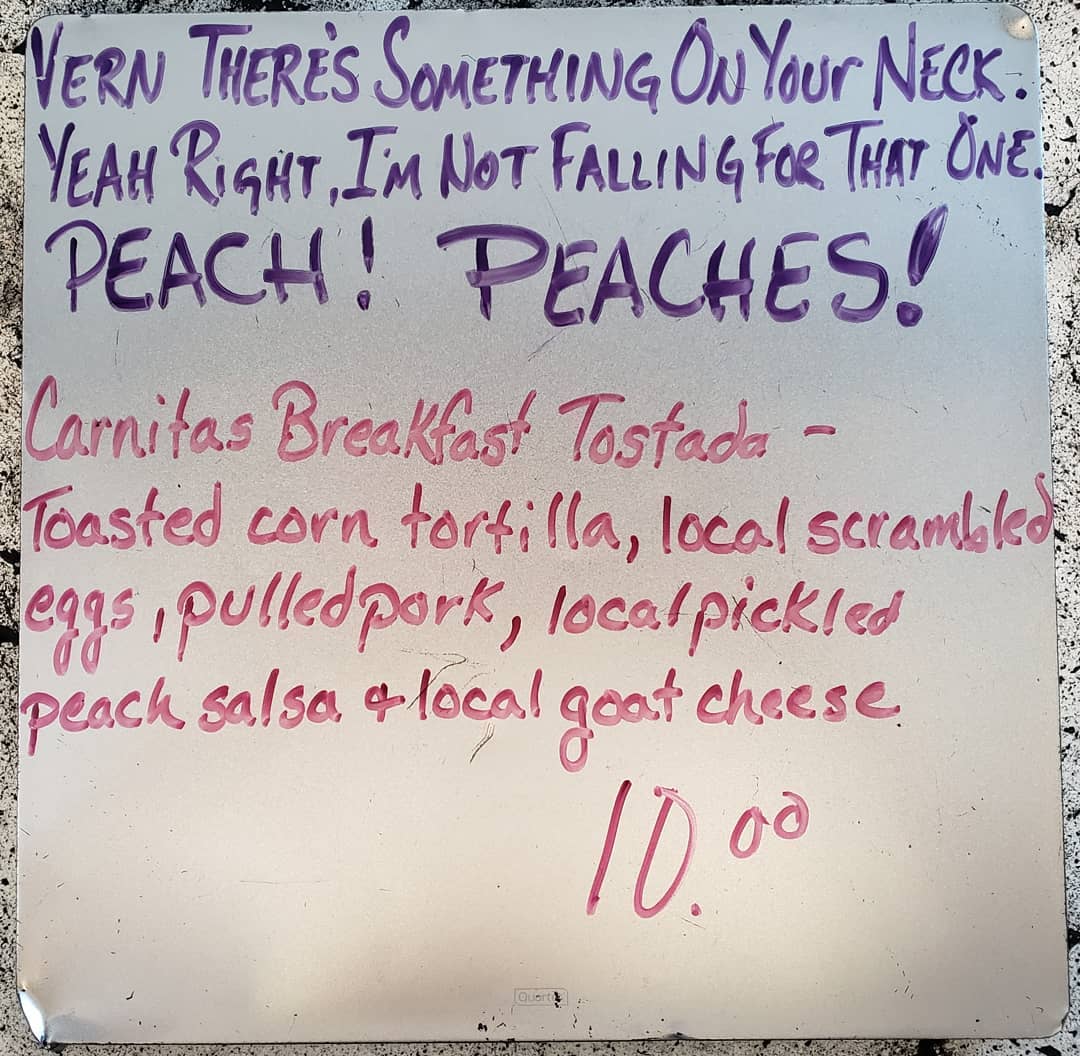 VERN THERE'S SOMETHING ON YOUR NECK.
YEAH RIGHT, I'M NOT FALLING FOR THAT ONE.
PEACH! PEACHES!
Carnitas Breakfast Tostada -
Toasted corn tortilla, local scrambled
eggs, pulled pork, local pickled
peach salsa & local goat cheese
10.00
Quartet